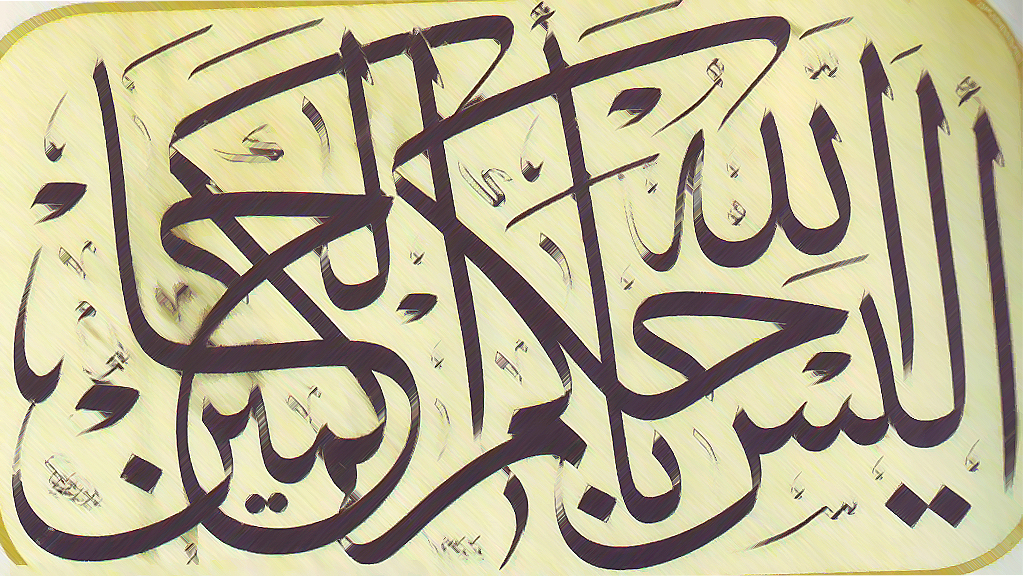 أليس الله بأحكم الحاكمين